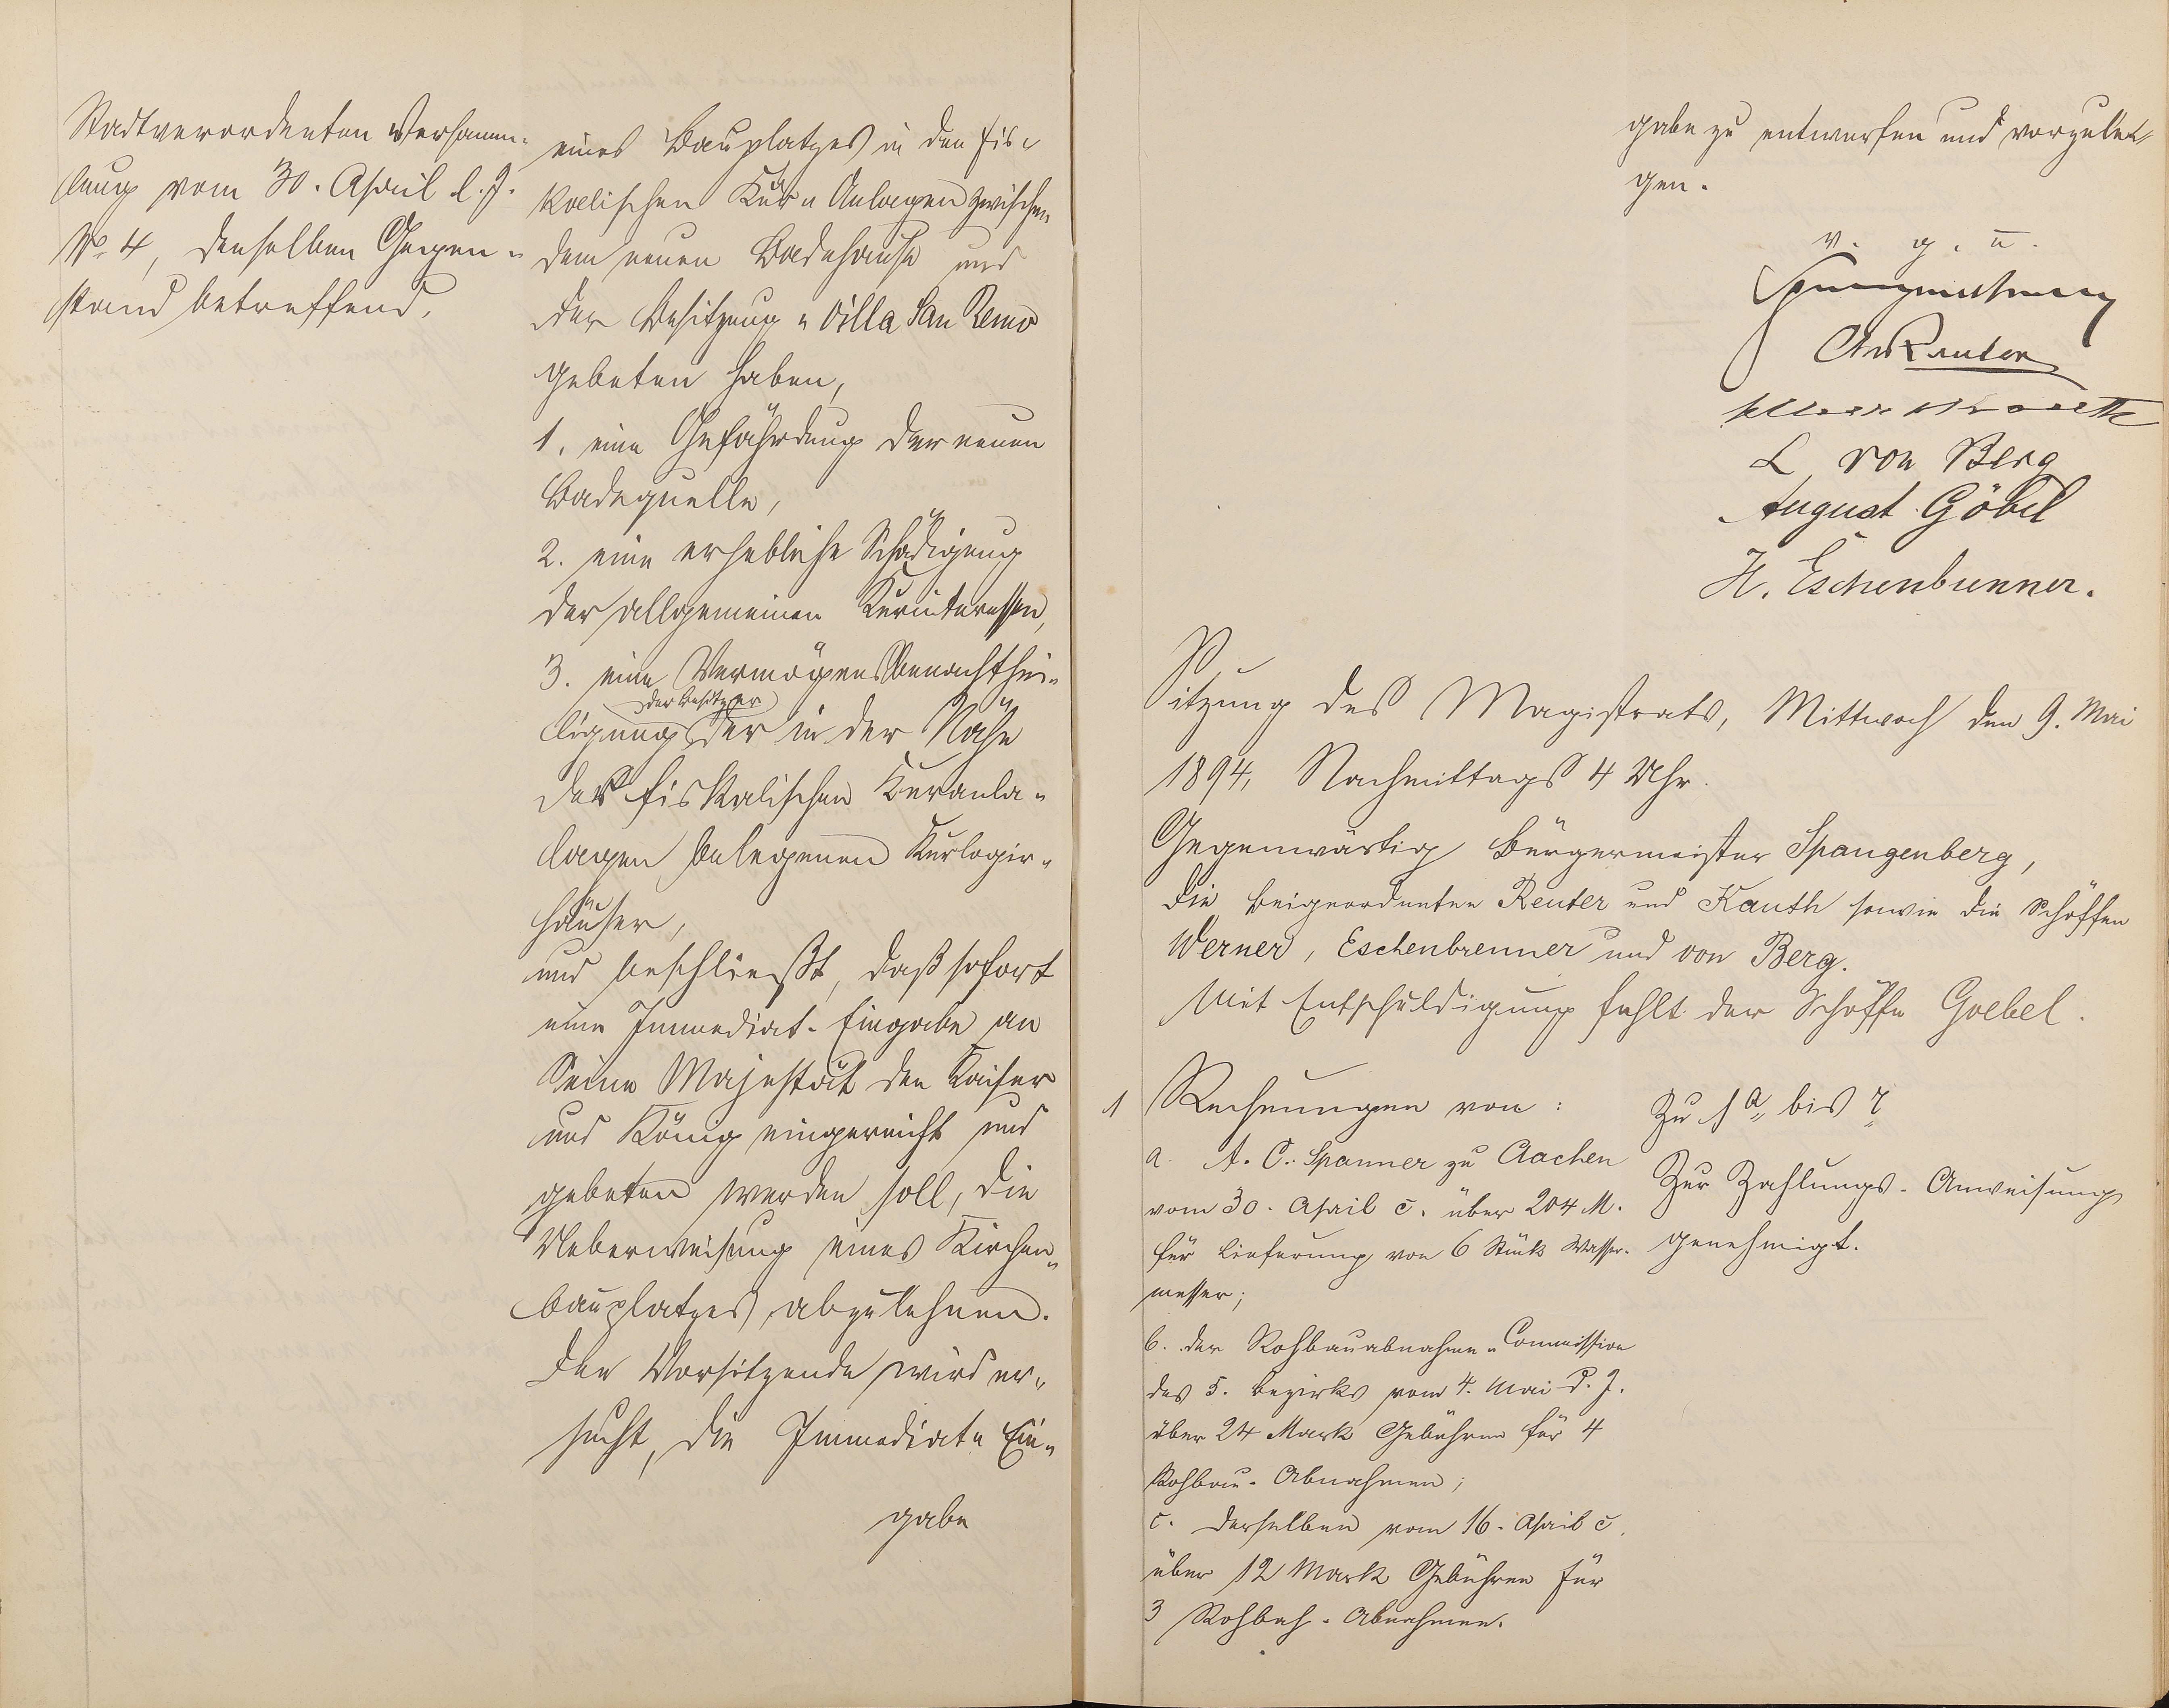 Stadtverordneten Versamm-
lung vom 30. April l. J.
No 4, denselben Gegen-
stand betreffend.
eines Bauplatzes in den fis-
kalischen Kur-Anlagen zwischen
dem neuen Badehause und
der Besitzung "Villa San Remo
gebeten haben,
1. eine Gefährdung der neuen
Badequelle,
2. eine erhebliche Schädigung
der allgemeinen Kurinteressen,
3. eine Vermögensbenachthei-
der Besitzer
ligung der in der Nähe
der fiskalischen Kuranla-
lagen belegenen Kurlogir-
häuser,
und beschließt, daß sofort
eine Immediat-Eingabe an
Seine Majestät den Kaiser
und König eingereicht und
gebeten werden soll, die
Ueberweisung eines Kirchen-
bauplatzes abzulehnen.
Der Vorsitzende wird er-
sucht, die Immediat-Ein-
gabe
gabe zu entwerfen und vorzule-
gen.
v. g. u.
Spangenberg
Reuter
Kauth
L von Berg
August Göbel
H. Eschenbrenner.
Sitzung des Magistrats, Mittwoch den 9. Mai
1894, Nachmittags 4 Uhr.
Gegenwärtig Bürgermeister Spangenberg,
die Beigeordneten Reuter und Kauth sowie die Schöffen
Werner, Eschenbrenner und von Berg.
Mit Entschuldigung fehlt der Schöffe Goebel.
1 Rechnungen von:
a. A. C. Spanner zu Aachen
vom 30. April c. über 204 M.
für Lieferung von 6 Stück Wasser-
messer;
b. der Rohbauabnahme-Commission
des 5. Bezirks vom 4. Mai d. J.
über 24 Mark Gebühren für 4
Rohbau-Abnahmen;
c. derselben vom 16. April c.
über 12 Mark Gebühren für
3 Rohbah-Abnahmen.
Zu 1 a bis r
Zur Zahlungs-Anweisung
genehmigt.